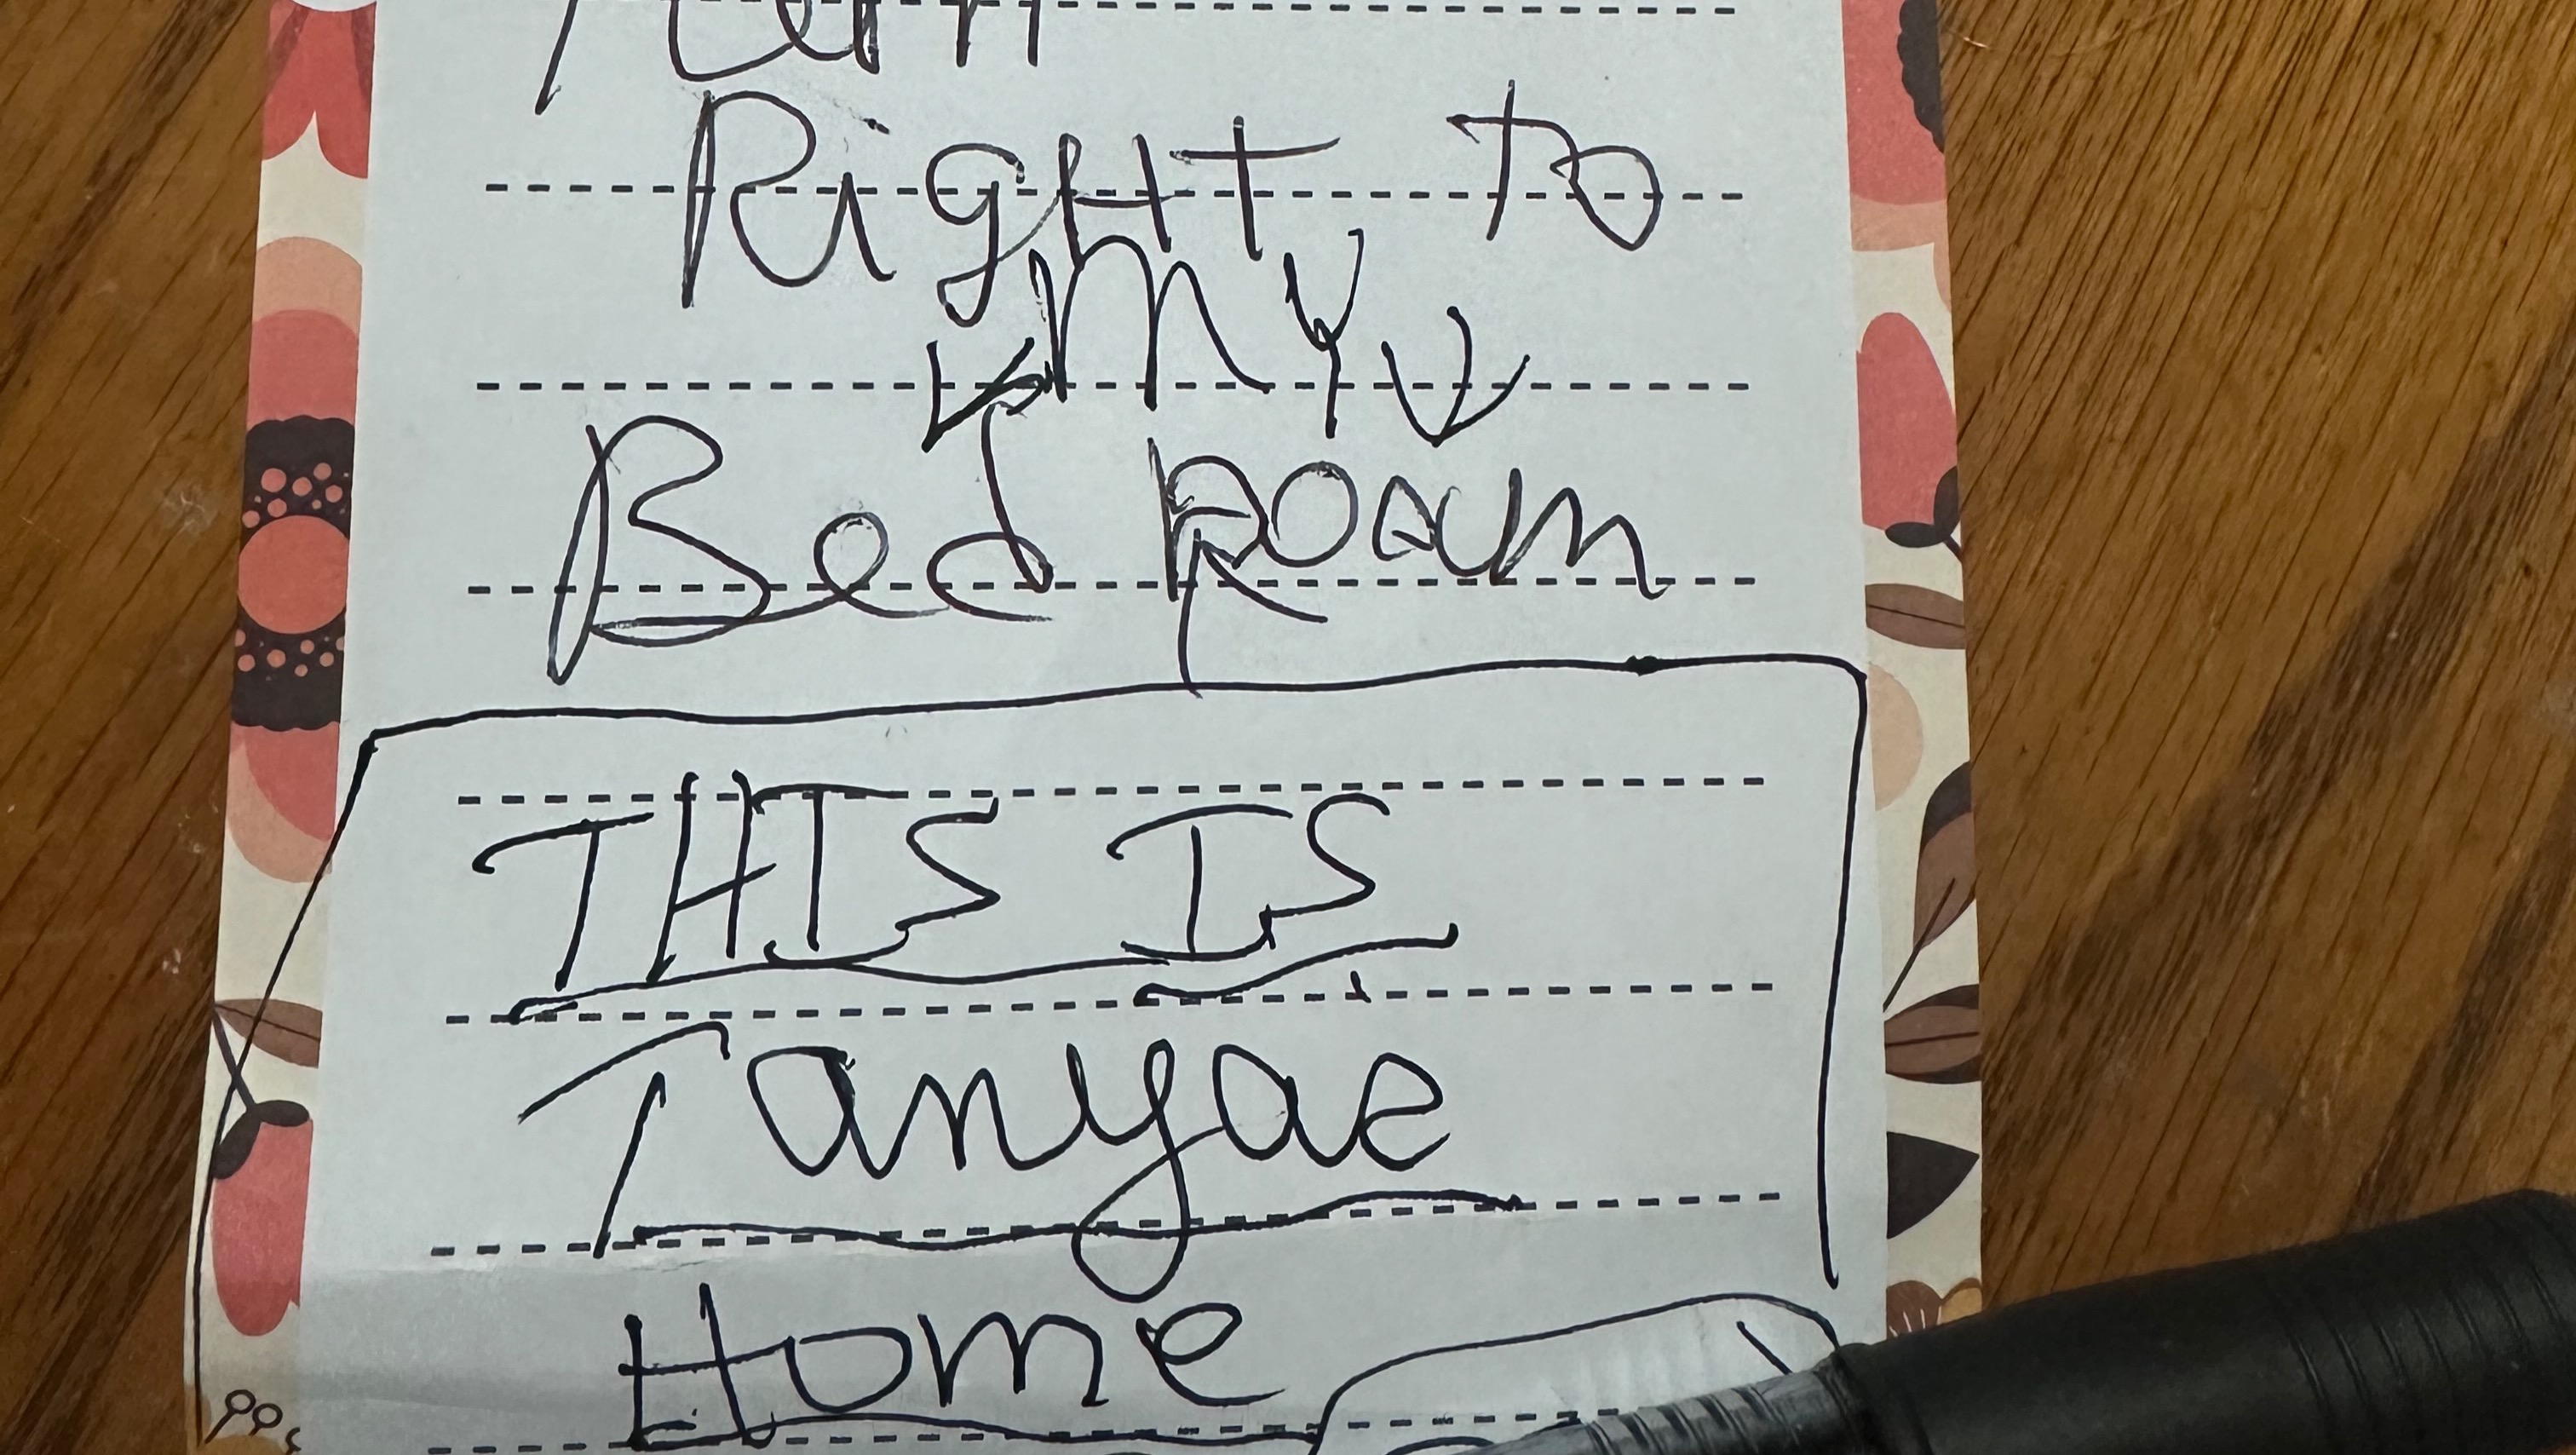 RigHt to
my
Bed Room
THIS IS
Tanyae
Home